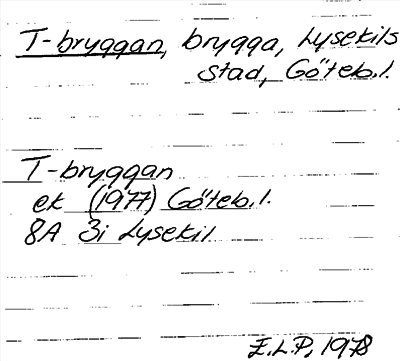 T-bryggan, brygga, Lysekils
stad, Göteb.l.
T-bryggan
ek (1977) Göteb.l.
8A 3i Lysekil
E.L.P. 1978